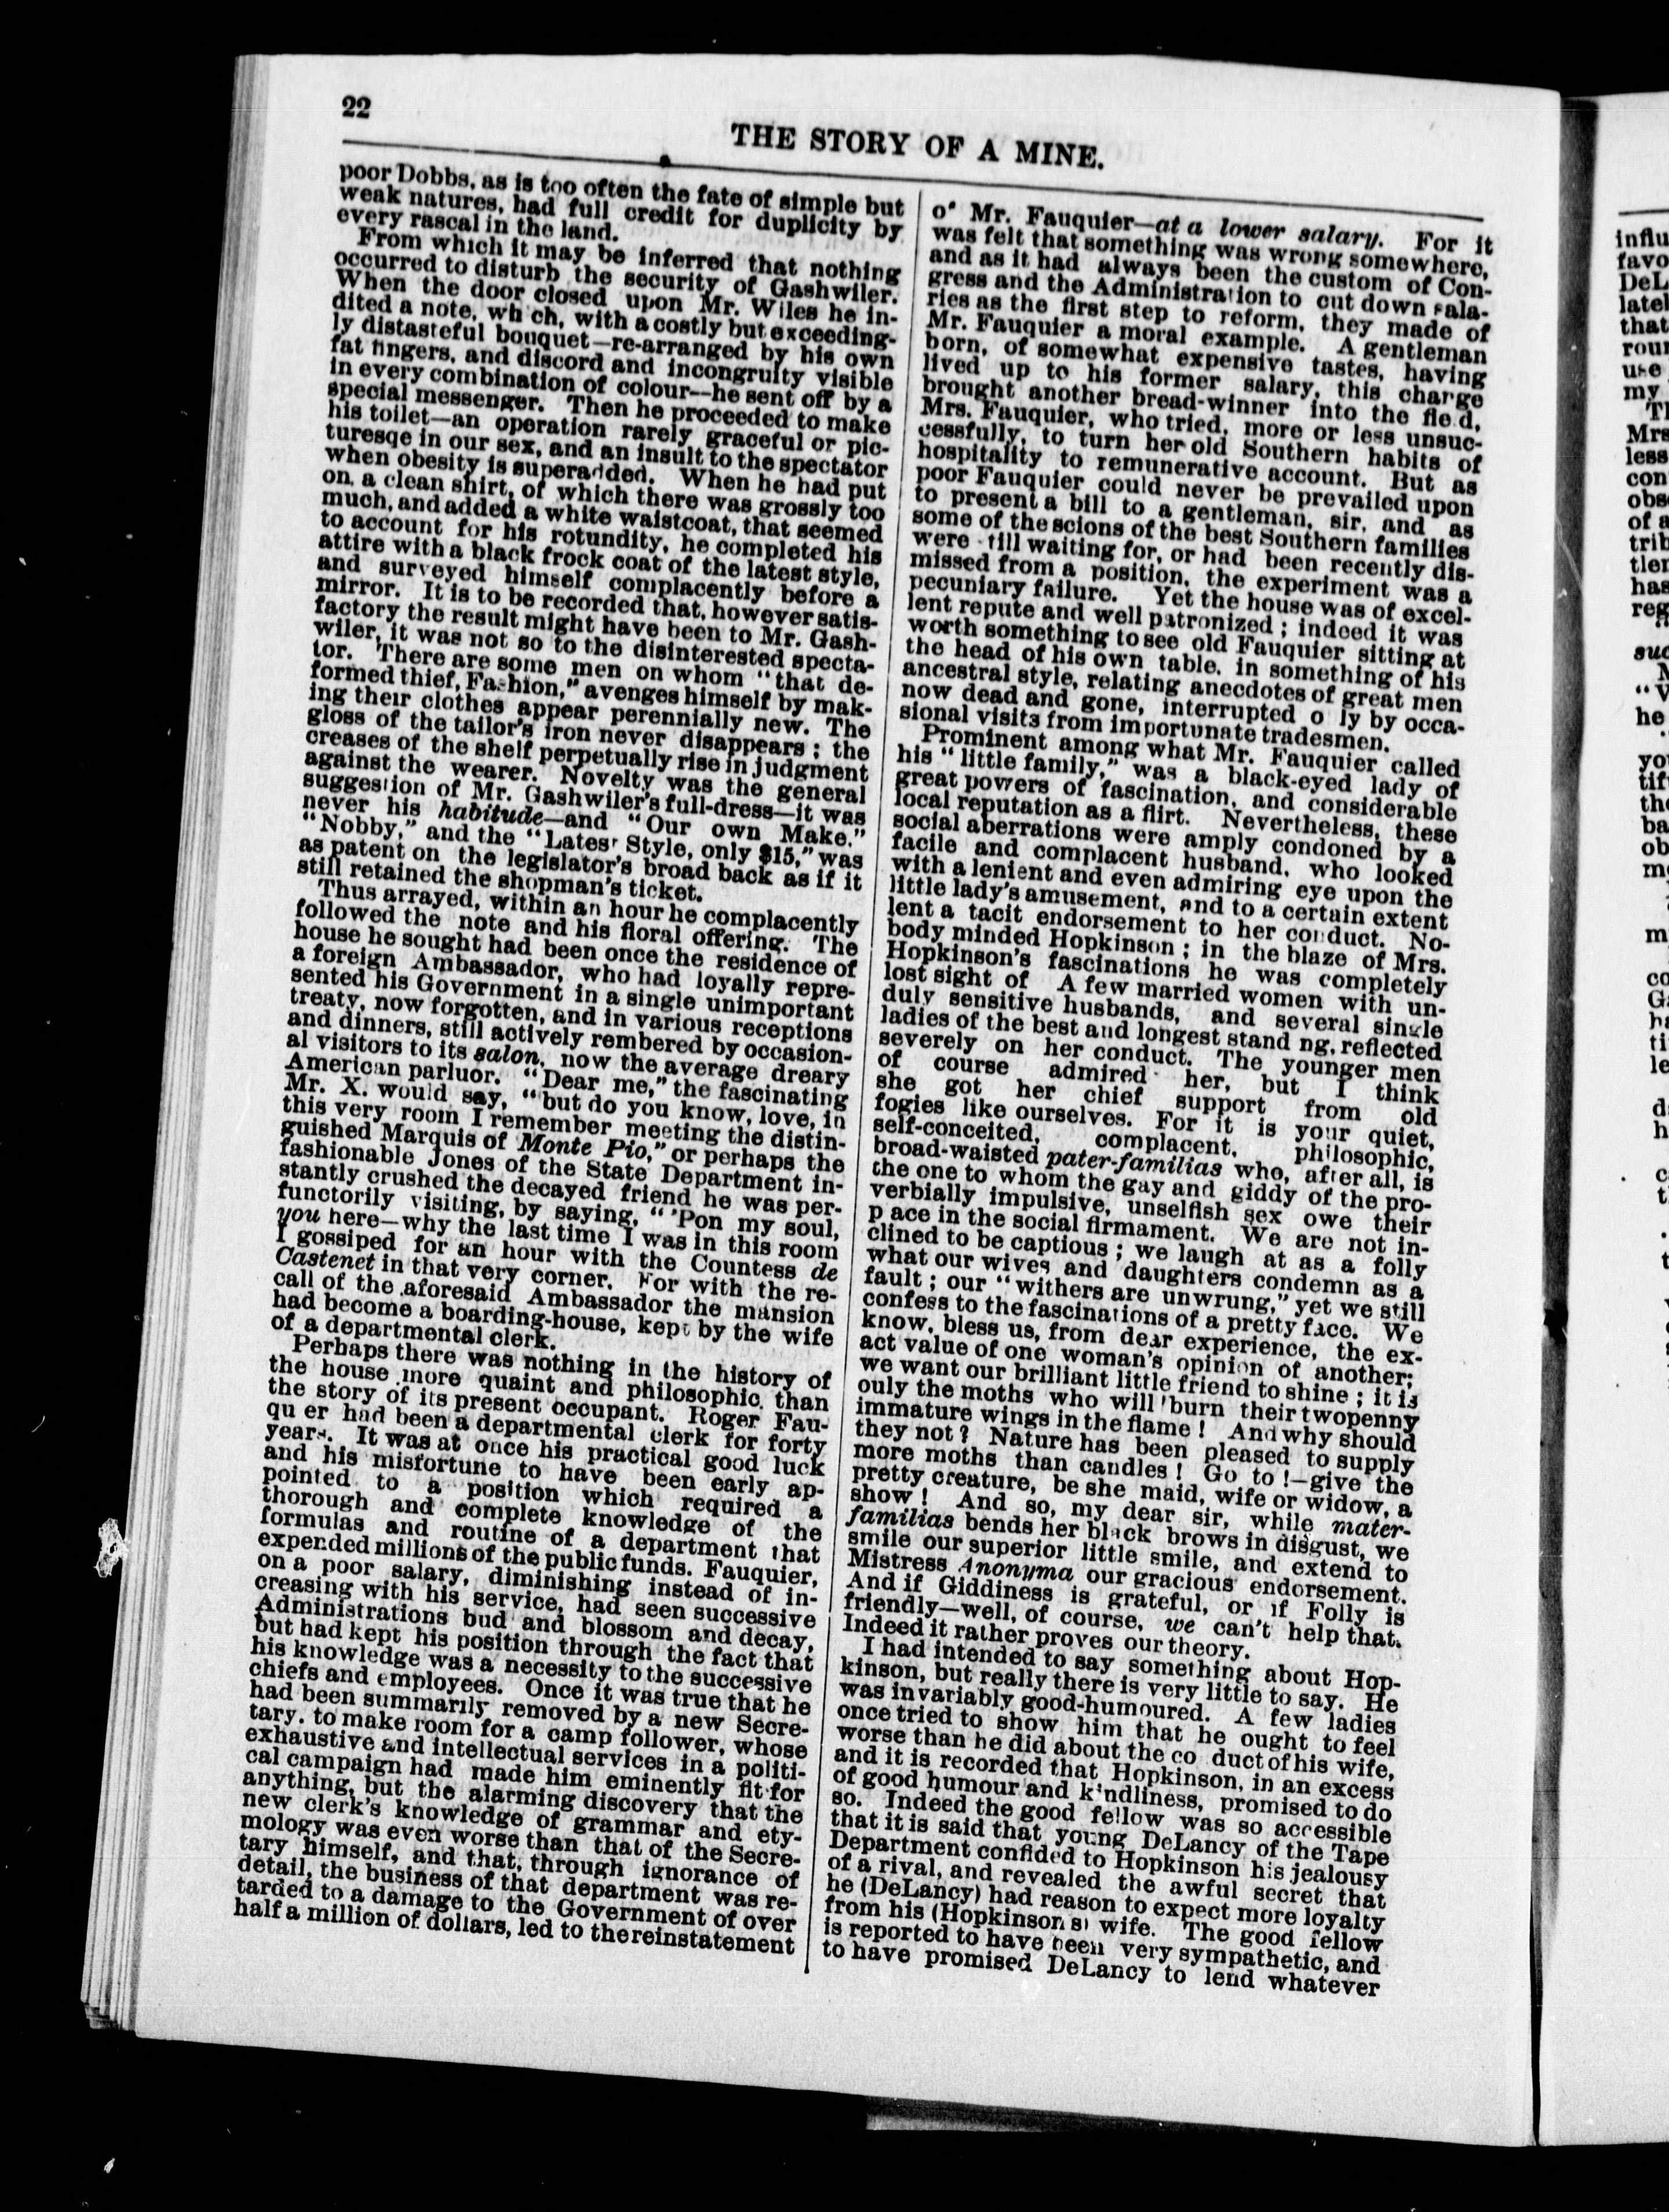 22
THE STORY OF A MINE.
poor Dobbs, as is too often the fate of simple but
weak natures, had full credit for duplicity by
every rascal in the land.
From which it may be inferred that nothing
occurred to disturb the security of Gashwiler.
When the door closed upon Mr. Wiles he in-
dited a note, wh ch, with a costly but exceeding-
ly distasteful bouquet—re-arranged by his own
fat fingers, and discord and incongruity visible
in every combination of colour—he sent off by a
special messenger. Then he proceeded to make
his toilet—an operation rarely graceful or pic-
turesqe in our sex, and an insult to the spectator
when obesity is superadded. When he had put
on, a clean shirt, of which there was grossly too
much, and added a white waistcoat, that seemed
to account for his rotundity, he completed his
attire with a black frock coat of the latest style,
and surveyed himself complacently before a
mirror. It is to be recorded that, however satis-
factory the result might have been to Mr. Gash-
wiler, it was not so to the disinterested specta-
tor. There are some men on whom "that de-
formed thief, Fashion," avenges himself by mak-
ing their clothes appear perennially new. The
gloss of the tailor's iron never disappears; the
creases of the shelf perpetually rise in judgment
against the wearer. Novelty was the general
suggestion of Mr. Gashwiler's full-dress—it was
never his habitude—and "Our own Make."
"Nobby," and the "Latest Style, only $15," was
as patent on the legislator's broad back as if it
still retained the shopman's ticket.
Thus arrayed, within an hour he complacently
followed the note and his floral offering. The
house he sought had been once the residence of
a foreign Ambassador, who had loyally repre-
sented his Government in a single unimportant
treaty, now forgotten, and in various receptions
and dinners, still actively rembered by occasion-
al visitors to its salon, now the average dreary
American parluor. "Dear me," the fascinating
Mr. X. would say, "but do you know, love, in
this very room I remember meeting the distin-
guished Marquis of Monte Pio," or perhaps the
fashionable Jones of the State Department in-
stantly crushed the decayed friend he was per-
functorily visiting, by saying, "'Pon my soul,
you here—why the last time I was in this room
I gossiped for an hour with the Countess de
Castenet in that very corner. For with the re-
call of the aforesaid Ambassador the mansion
had become a boarding-house, kept by the wife
of a departmental clerk.
Perhaps there was nothing in the history of
the house more quaint and philosophic than
the story of its present occupant. Roger Fau-
qu er had been a departmental clerk for forty
years. It was at once his practical good luck
and his misfortune to have been early ap-
pointed to a position which required a
thorough and complete knowledge of the
formulas and routine of a department that
expended millions of the public funds. Fauquier,
on a poor salary, diminishing instead of in-
creasing with his service, had seen successive
Administrations bud and blossom and decay,
but had kept his position through the fact that
his knowledge was a necessity to the successive
chiefs and employees. Once it was true that he
had been summarily removed by a new Secre-
tary, to make room for a camp follower, whose
exhaustive and intellectual services in a politi-
cal campaign had made him eminently fit for
anything, but the alarming discovery that the
new clerk's knowledge of grammar and ety-
mology was even worse than that of the Secre-
tary himself, and that, through ignorance of
detail, the business of that department was re-
tarded to a damage to the Government of over
half a million of dollars, led to the reinstatement
o' Mr. Fauquier—at a lower salary. For it
was felt that something was wrong somewhere,
and as it had always been the custom of Con-
gress and the Administration to cut down sala-
ries as the first step to reform, they made of
Mr. Fauquier a moral example. A gentleman
born, of somewhat expensive tastes, having
lived up to his former salary, this charge
brought another bread-winner into the fie d,
Mrs. Fauquier, who tried, more or less unsuc-
cessfully, to turn her old Southern habits of
hospitality to remunerative account. But as
poor Fauquier could never be prevailed upon
to present a bill to a gentleman, sir, and as
some of the scions of the best Southern families
were till waiting for, or had been recently dis-
missed from a position, the experiment was a
pecuniary failure. Yet the house was of excel-
lent repute and well patronized; indeed it was
worth something to see old Fauquier sitting at
the head of his own table, in something of his
ancestral style, relating anecdotes of great men
now dead and gone, interrupted o ly by occa-
sional visits from importunate tradesmen.
Prominent among what Mr. Fauquier called
his "little family," was a black-eyed lady of
great powers of fascination, and considerable
local reputation as a flirt. Nevertheless, these
social aberrations were amply condoned by a
facile and complacent husband, who looked
with a lenient and even admiring eye upon the
little lady's amusement, and to a certain extent
lent a tacit endorsement to her conduct. No-
body minded Hopkinson; in the blaze of Mrs.
Hopkinson's fascinations he was completely
lost sight of A few married women with un-
duly sensitive husbands, and several single
ladies of the best and longest stand ng, reflected
severely on her conduct. The younger men
of course admired her, but I think
she got her chief support from old
fogies like ourselves. For it is your quiet,
self-conceited, complacent, philosophic,
broad-waisted pater-familias who, after all, is
the one to whom the gay and giddy of the pro-
verbially impulsive, unselfish sex owe their
p ace in the social firmament. We are not in-
clined to be captious; we laugh at as a folly
what our wives and daughters condemn as a
fault; our "withers are unwrung," yet we still
confess to the fascinations of a pretty face. We
know, bless us, from dear experience, the ex-
act value of one woman's opinion of another;
we want our brilliant little friend to shine; it is
ouly the moths who will burn their twopenny
immature wings in the flame! And why should
they not? Nature has been pleased to supply
more moths than candles! Go to!—give the
pretty creature, be she maid, wife or widow, a
show! And so, my dear sir, while mater-
familias bends her black brows in disgust, we
smile our superior little smile, and extend to
Mistress Anonyma our gracious endorsement.
And if Giddiness is grateful, or if Folly is
friendly—well, of course, we can't help that.
Indeed it rather proves our theory.
I had intended to say something about Hop-
kinson, but really there is very little to say. He
was invariably good-humoured. A few ladies
once tried to show him that he ought to feel
worse than he did about the co duct of his wife,
and it is recorded that Hopkinson, in an excess
of good humour and kindliness, promised to do
so. Indeed the good fellow was so accessible
that it is said that young DeLancy of the Tape
Department confided to Hopkinson his jealousy
of a rival, and revealed the awful secret that
he (DeLancy) had reason to expect more loyalty
from his (Hopkinson s) wife. The good fellow
is reported to have been very sympathetic, and
to have promised DeLancy to lend whatever